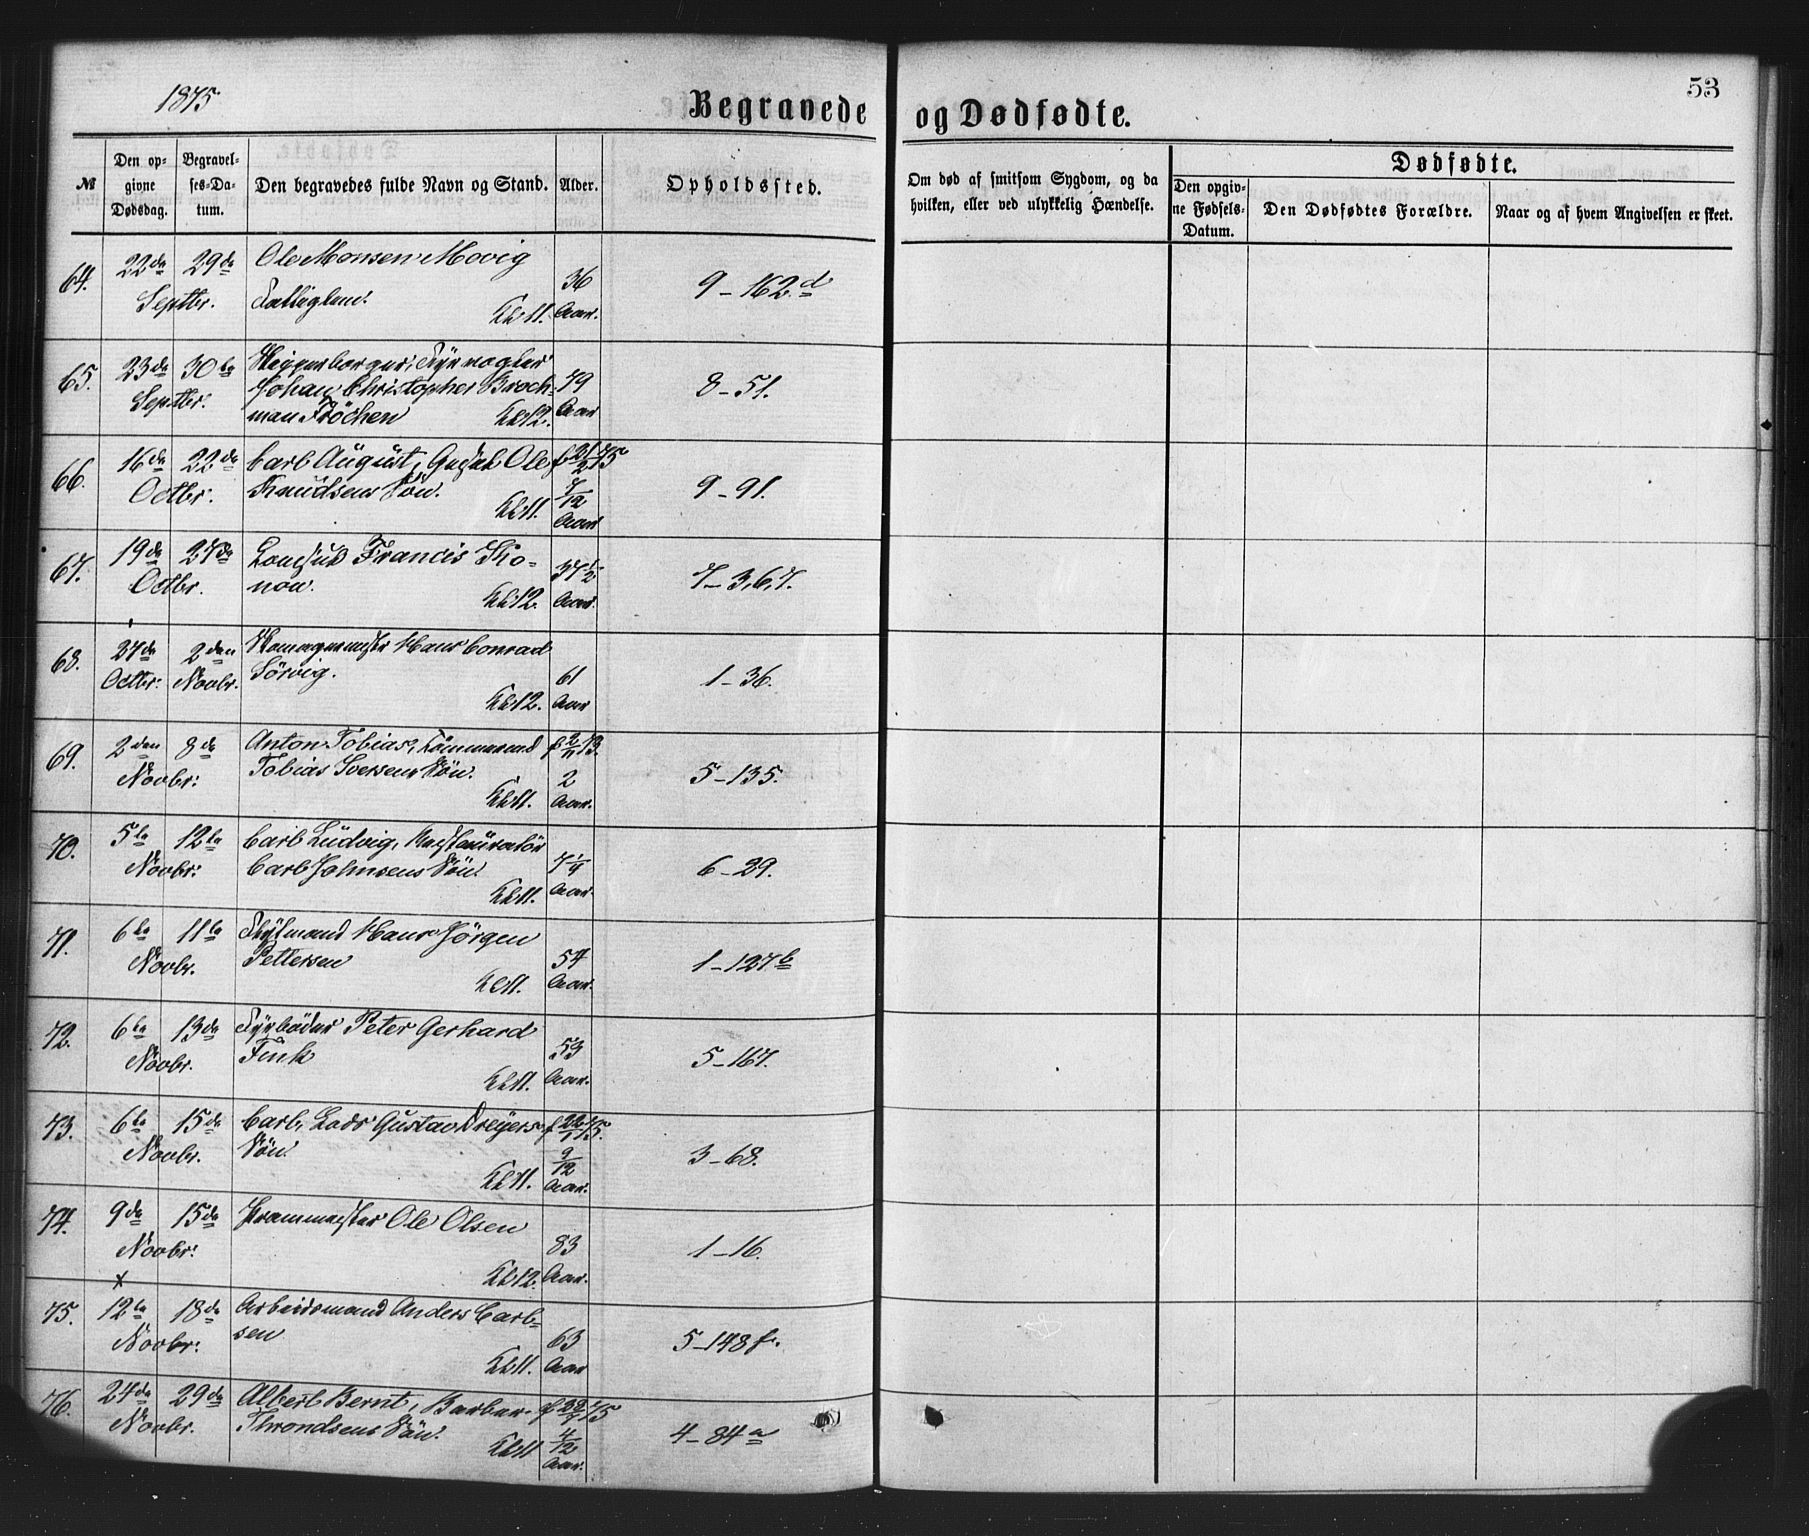 1875
53
Begravede og Dødfødte.
№
Den opgivne Dødsdag.
Begravelses-Datum.
Den begravedes fulde Navn og Stand.
Alder.
Opholdssted.
Om død af smitsom Sygdom, og da hvilken, eller ved ulykkelig Hændelse.
Dødfødte.
Den opgivne Fødsels-Datum.
Den Dødfødtes Forældre.
Naar og af hvem Angivelsen er skeet.
64. 22de 29de Ole Monsen Movig 36 9-162.d
Septbr. Fattiglem. Kl: 11. Aar.
65. 23de 30te Skipperborger, 79 8-51.
Septbr. Johan Christopher Broch-
man Fröchen Kl: 12. Aar
66. 16de 22de Carl August, Ole f 21/2 75 9-91.
Octbr. Knudsens Sön. Kl: 11. 7/12 Aar
67. 19de 27de Francis Ko- 37 1/2 7-3,6,7.
Octbr. now. Kl: 12. Aar.
68. 27de 2den Hans Conrad 1-36.
Octbr. Novbr. Sörvig. Kl: 12. 61 Aar
69. 2den 8de Anton Tobias, Tömmermand f 2/11 73. 5-135.
Novbr. Tobias Iversens Sön. Kl: 11. 2 Aar.
70. 5te 12te Carl Ludvig, Restauratör 7 1/4 6-29.
Novbr. Carl Johnsens Sön. Kl: 11. Aar.
71. 6te 11te Flytmand Hans Jörgen 54 1-127b
Novbr. Pettersen Kl: 11. Aar.
72. 6te 13de Fyrböder Peter Gerhard 53 5-167.
Novbr. Fink Kl: 11. Aar.
73. 6te 15de Carl, Lods Gustav Dreyers f 22/1 75. 3-68.
Novbr. Sön. Kl: 11. 9/12 Aar.
74. 9de 15de Ole Olsen 83 1-16.
Novbr. Kl: 12. Aar.
x
75. 12te 18de Arbeidsmand Anders Carl- 63 5-148f.
Novbr. sen Kl: 11. Aar
76. 24de 29de Albert Bernt, Barber f 22/7 75 4-84a
Novbr. Throndsens Sön. Kl: 11 4/12 Aar.